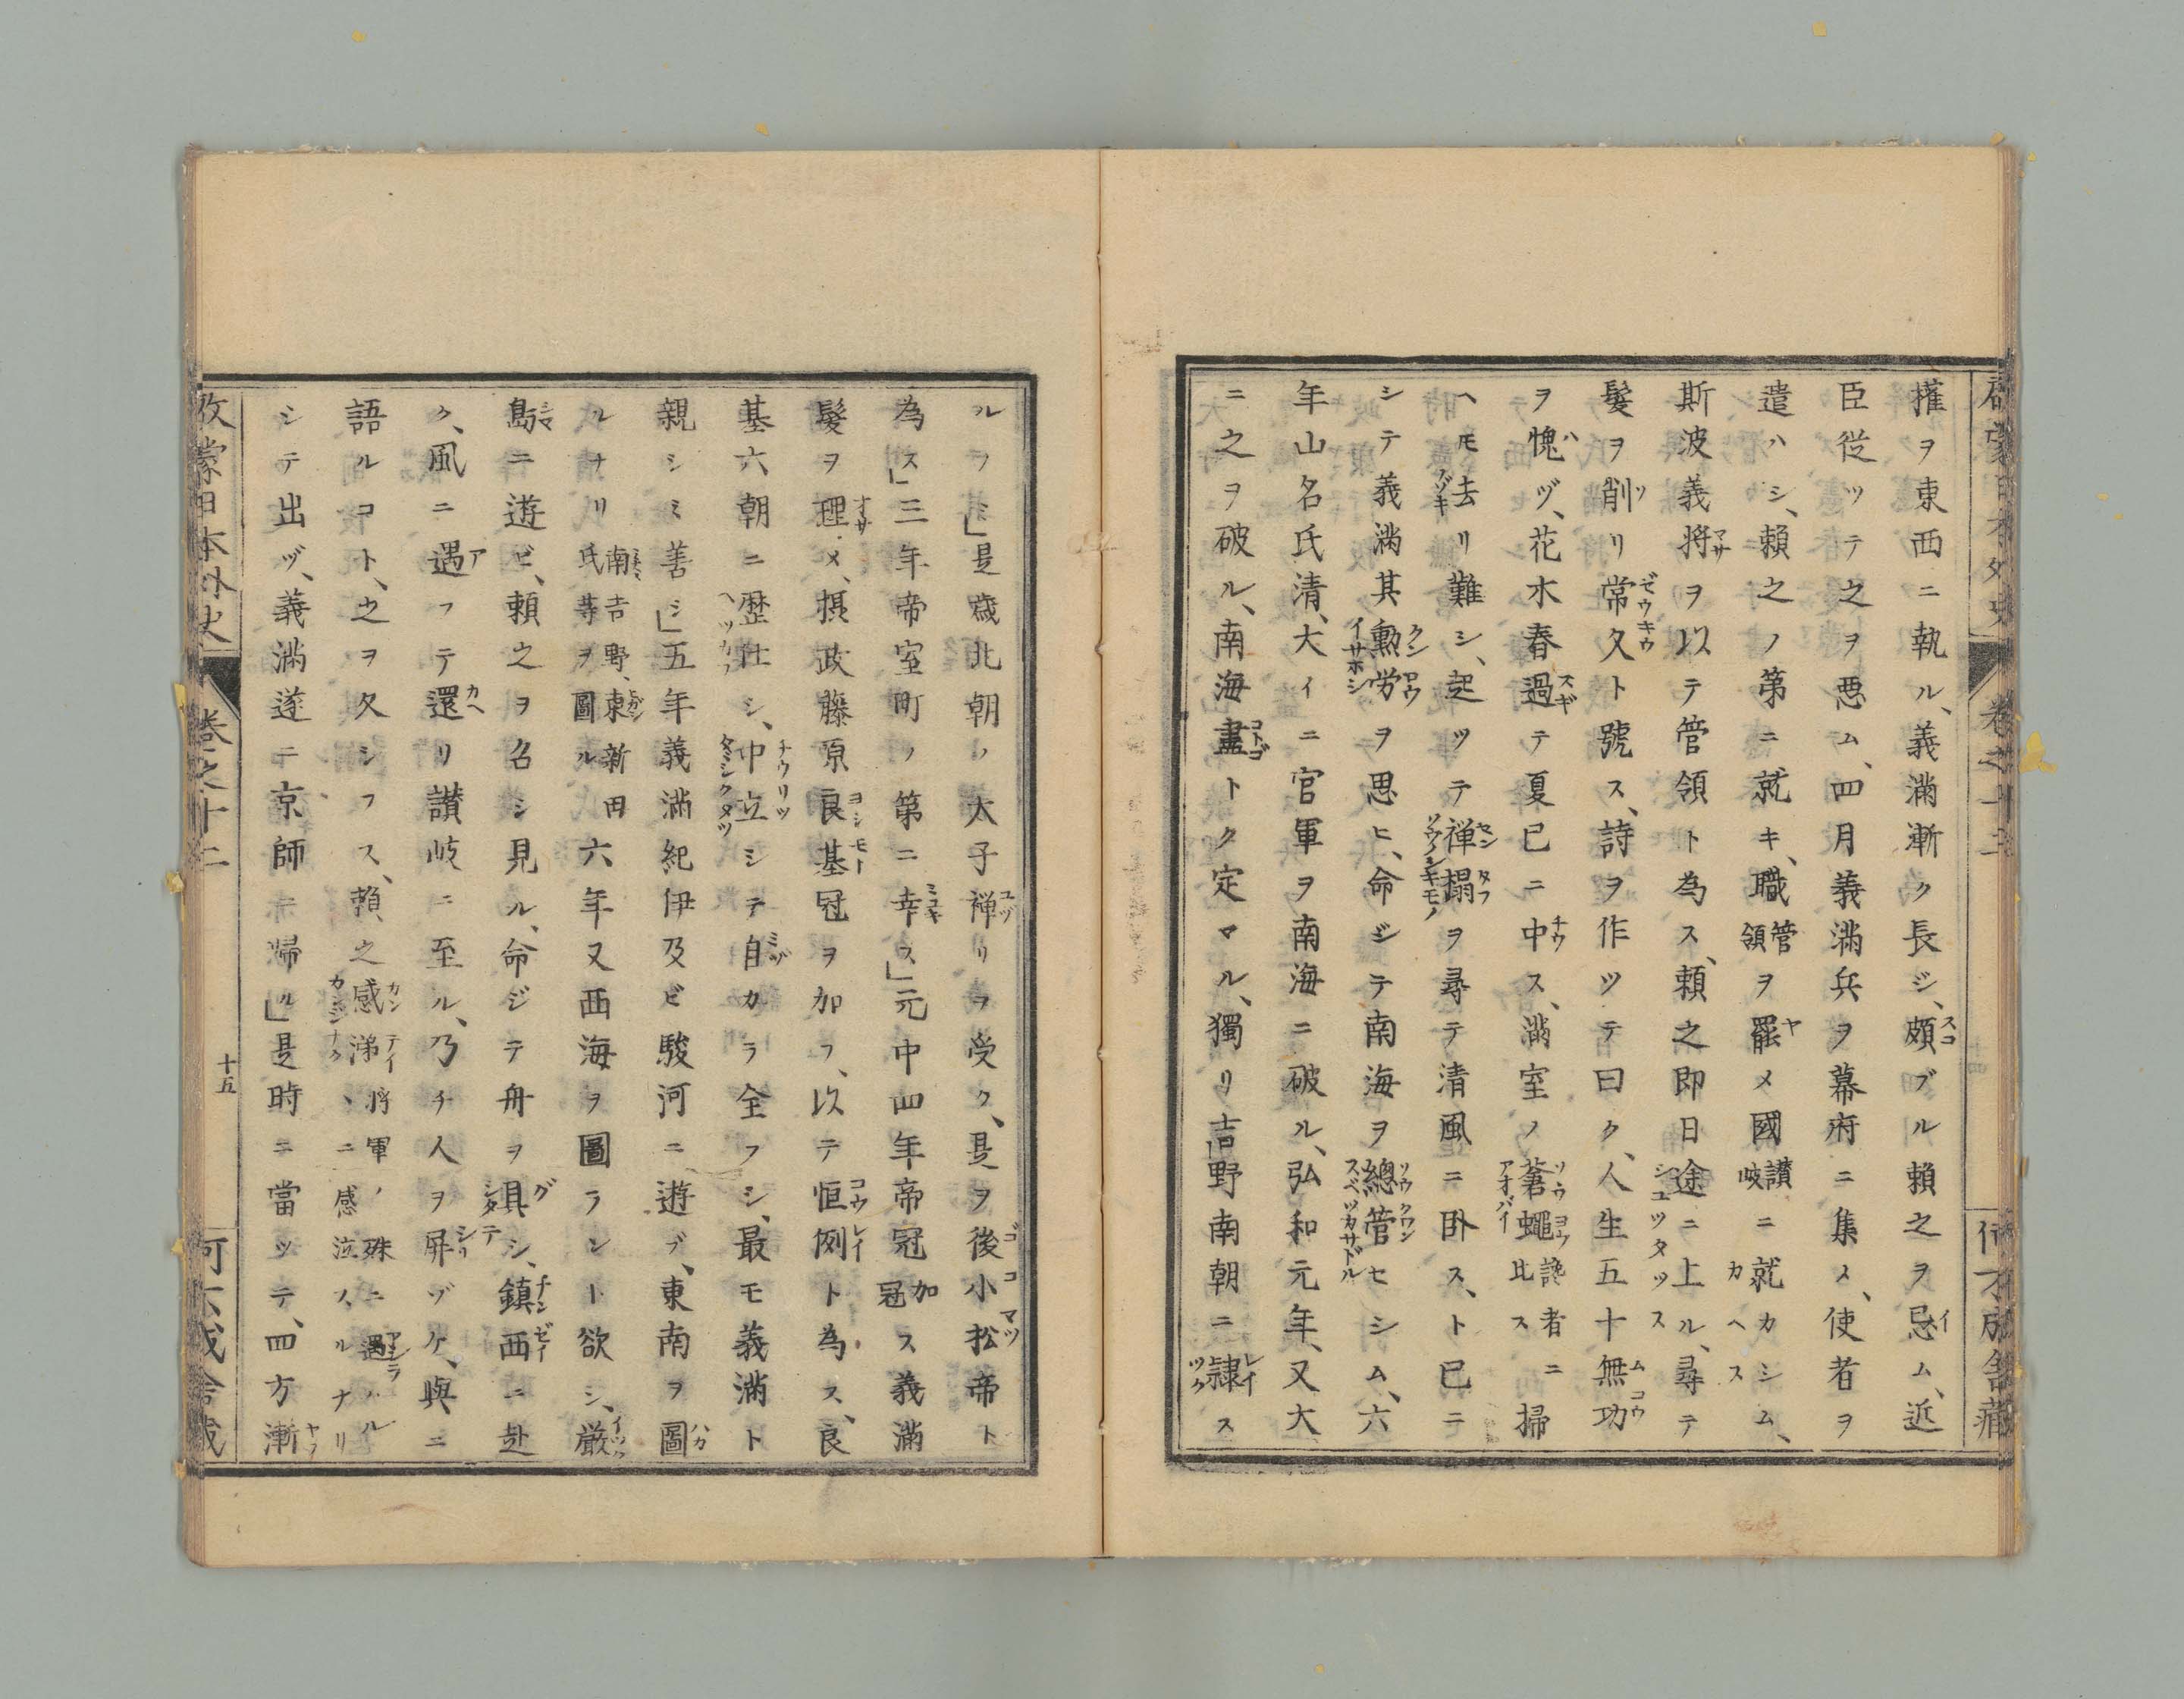 權ヲ東西ニ執ル、義滿漸ク長ジ、頗ブル賴之ヲ忌ム、近
臣從ツテ之ヲ悪ム、四月義滿兵ヲ幕府ニ集メ、使者ヲ
遣ハシ、賴之ノ第ニ就キ、職管領ヲ罷メ國讃岐ニ就カシム、
斯波義将ヲ以テ管領ト為ス、賴之即日途ニ上ル、尋テ
髮ヲ削リ常久ト號ス、詩ヲ作ツテ曰ク、人生五十無功
ヲ愧ヅ、花木春過テ夏已ニ中ス、滿室ノ蒼蠅讒者ニ比ス掃
ヘモ去リ難シ、起ツテ禅榻ヲ尋テ清風ニ卧ス、ト已ニ
シテ義滿其勲労ヲ思ヒ、命ジテ南海ヲ總管セシム、六
年山名氏清、大イニ官軍ヲ南海ニ破ル、弘和元年、又大
ニ之ヲ破ル、南海盡トク定マル、獨リ吉野南朝ニ隷ス
ルヲ」是歳北朝ノ太子禅リヲ受ク、是ヲ後小松帝ト
為ス」三年帝室町ノ第ニ幸ス」元中四年帝冠加冠ス義滿
髮ヲ理メ、摂政藤原良基冠ヲ加フ、以テ恒例ト為ス、良
基六朝ニ歴仕シ、中立シテ自カラ全フシ、最モ義滿ト
親シミ善シ」五年義滿紀伊及ビ駿河ニ遊ブ、東南ヲ圖
ルナリ南吉野、東新田氏等ヲ圖ル六年又西海ヲ圖ラント欲シ、厳
島ニ遊ビ、賴之ヲ名シ見ル、命ジテ舟ヲ具シ、鎮西ニ赴
ク、風ニ遇フテ還リ讃岐ニ至ル、乃チ人ヲ屏ヅケ、與ニ
語ルコト、之ヲ久シフス、賴之感涕将軍ノ殊ニ遇ハルヽニ感泣スルナリ
シテ出ヅ、義滿遂ニ京師ニ帰ル」是時ニ當ツテ、四方漸
巻之十二
十五